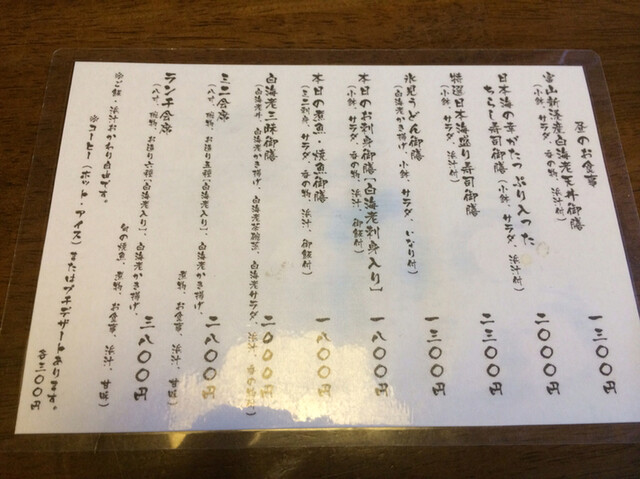 昼のお食事
富山新湊産白海老天丼御膳 一三〇〇円
(小鉢、サラダ、香の物、浜汁付)
日本海の幸がたっぷり入った
ちらし寿司御膳(小鉢、サラダ、浜汁付) 二〇〇〇円
特選日本海盛り寿司御膳 二三〇〇円
(小鉢、サラダ、浜汁付)
氷見うどん御膳 一三〇〇円
(白海老かき揚げ、小鉢、サラダ、いなり付)
本日のお刺身御膳「白海老刺身入り」 一八〇〇円
(小鉢、サラダ、香の物、浜汁、御飯付)
本日の煮魚・焼魚御膳 一八〇〇円
(ミニ刺身、サラダ、香の物、浜汁、御飯付)
白海老三昧御膳 二〇〇〇円
(白海老丼、白海老かき揚げ、白海老茶碗蒸、白海老サラダ、浜汁、香の物)
ミニ会席 二八〇〇円
(八寸、椀物、お造り五種「白海老入り」、白海老かき揚げ、
煮物、お食事、浜汁、甘味)
ランチ会席 三八〇〇円
(八寸、椀物、お造り六種「白海老入り」、白海老かき揚げ、
旬の焼魚、煮物、お食事、浜汁、甘味)
※ご飯・浜汁おかわり自由です。
※コーヒー(ホット・アイス)またはプチデザートあります。
各三〇〇円